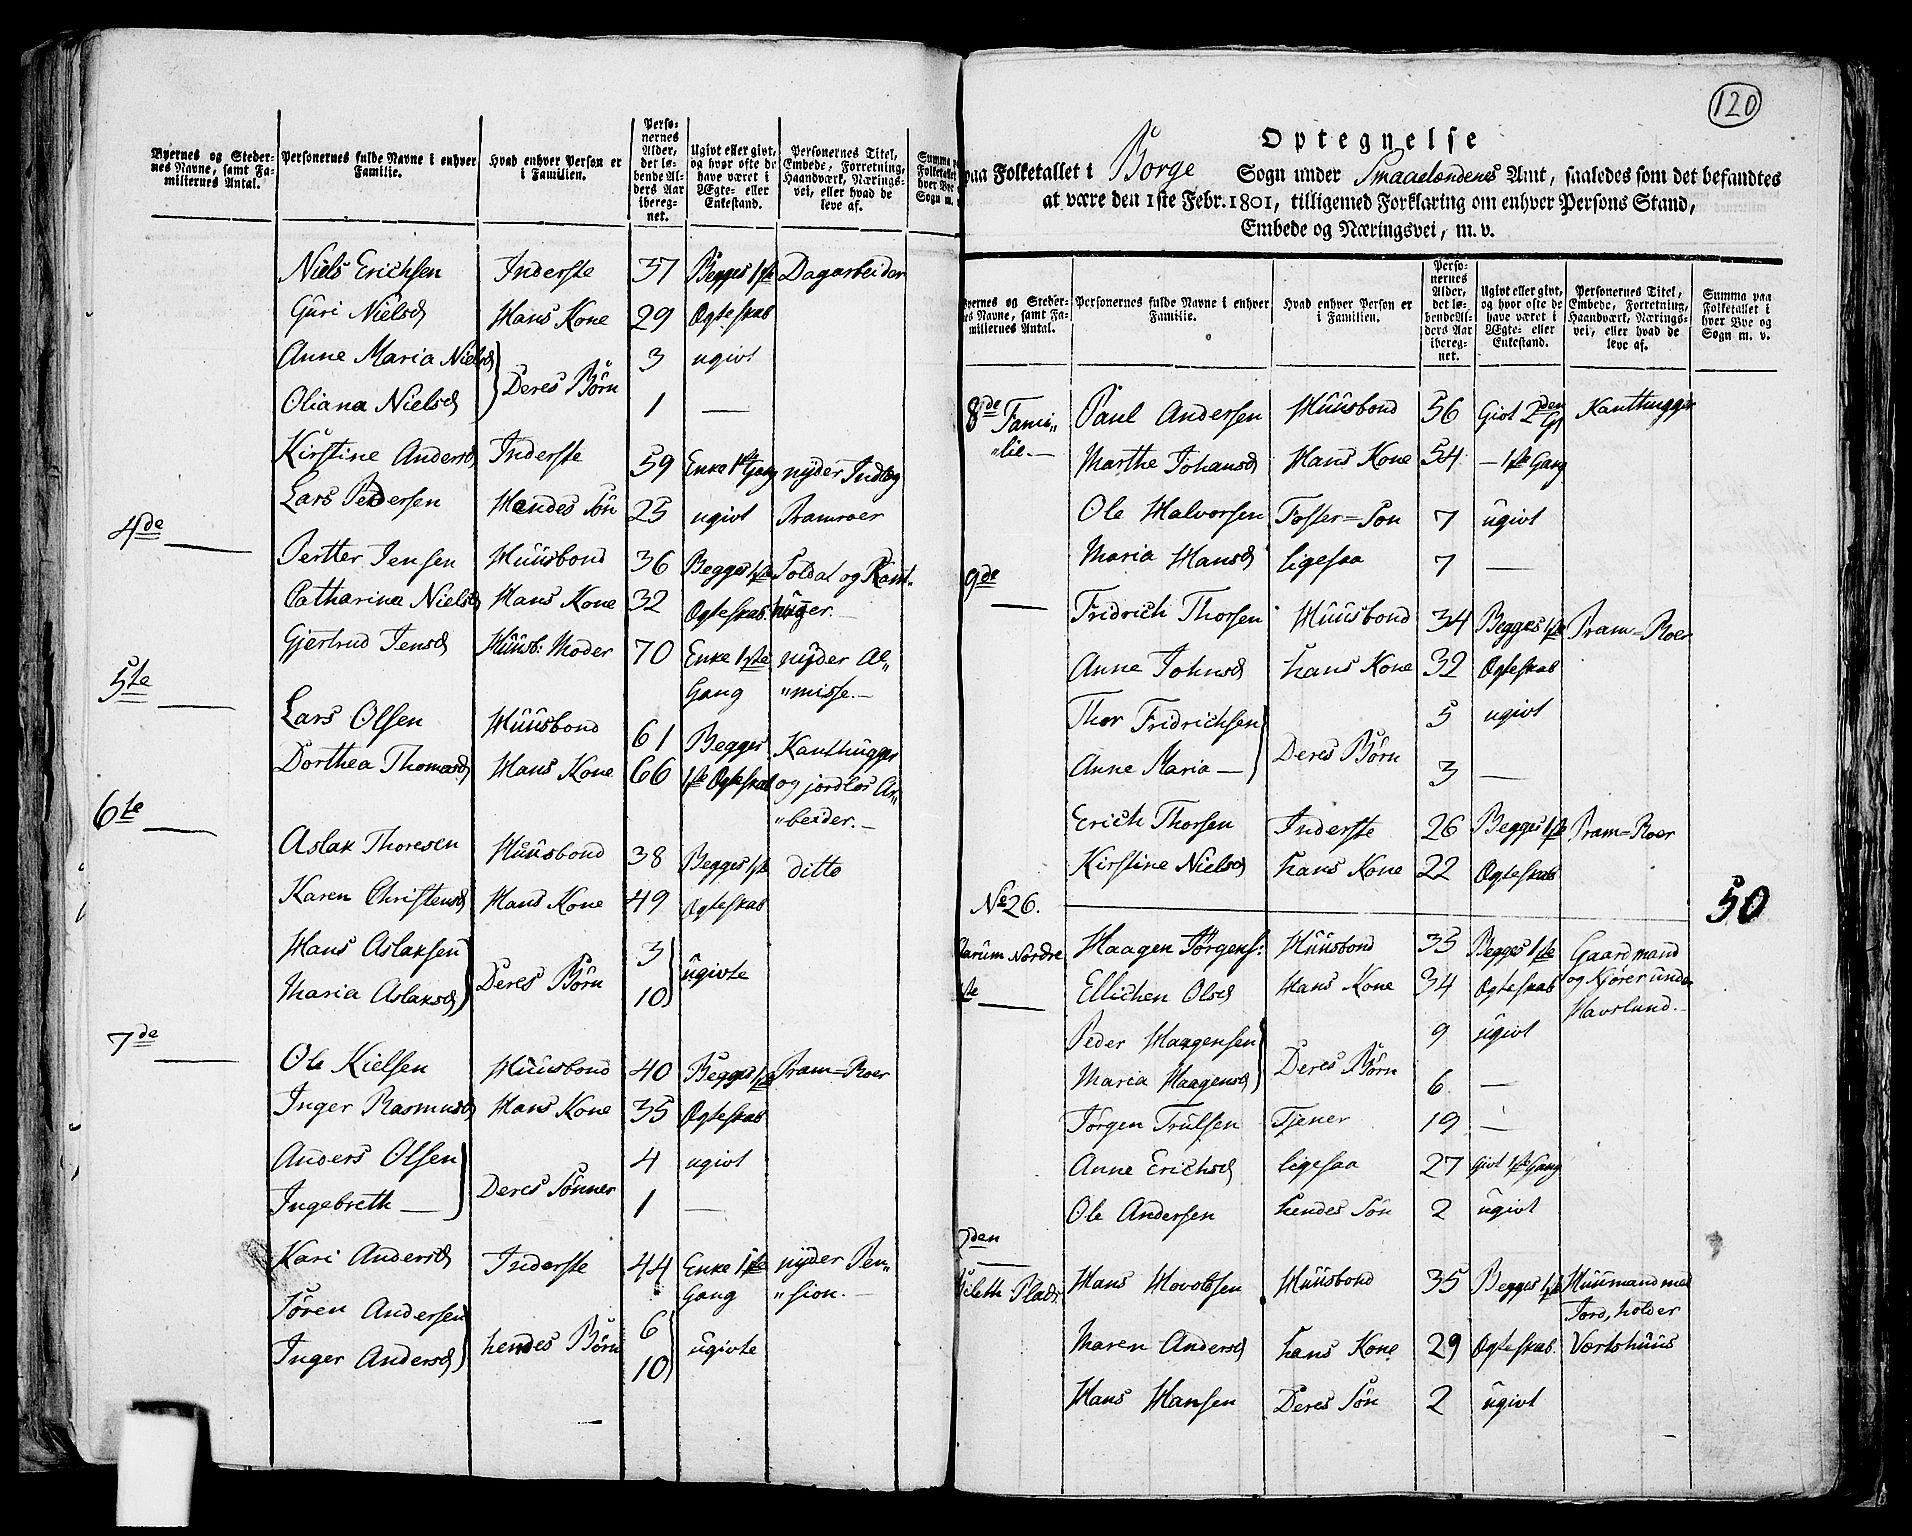 Byernes og Steder- Personernes fulde Navne i enhver Hvad enhver Person er Perso- Ugivt eller givt, Personernes Titel, Summa paa
nes Navne, samt Fa- Familie. i Familien. nernes og hvor ofte de Embede, Forretning, Folketallet
milternes Antal. Alder, have været i Haandværk, Nærings- hver Bye
det lø- Ægte- eller vei, eller hvad de Sogn m.
bende Al- Enkestand. leve af.
ders Aar
iberegnet.
Niels Erichsen Inderste 37 Begges 1ste Dagarbeider
Guri Nielsd Hans Kone 29 Ægteskab
Anne Maria Nielsd } Deres Børn 3 ugivt
Oliana Nielsd 1 —
Kirstine Andersd Inderste 59 Enke 1ste Gang nyder Indlæg
Lars Pedersen Hendes Søn 23 ugivt Pramroer
4de —
Pertter Jensen Huusbond 36 Begges 1ste Soldat og Kant-
Catharina Nielsd Hans Kone 32 Ægteskab huger.—
Gjertrud Jensd Huusb: Moder 70 Enke 1ste nyder Al„
Gang „misse.—
5te —
Lars Olsen Huusbond 61 Begges Kanthugger
Dorthea Thomasd Hans Kone 66 1ste Ægteskab og jordløs Ar„
„beider.—
6te —
Aslak Thoresen Huusbond 38 Begges 1ste ditto
Karen Christensd Hans Kone 49 Ægteskab
Hans Aslaksen } Deres Børn 3 } ugivte
Maria Aslaksd 10
7de —
Ole Nielsen Huusbond 40 Begges 1ste Pram=Roer
Inger Rasmusd Hans Kone 35 Ægteskab
Anders Olsen } Deres Sønner 4 ugivt
Ingebreth — 1 —
Kari Andersd Inderste 44 Enke 1ste nyder Pen„
Gang „sion.—
Søren Andersen } hendes Børn 6 } ugivte
Inger Andersd 10
120
Optegnelse
paa Folketallet i Borge Sogn under Smaalendenes Amt, saaledes som det befandtes
at være den 1ste Febr. 1801, tilligemed Forklaring om enhver Persons Stand,
Embede og Næringsvei, m. v.
Byernes og Steder- Personernes fulde Navne i enhver Hvad enhver Person er Perso- Ugivt eller givt, Personernes Titel, Summa paa
nes Navne, samt Fa- Familie. i Familien. nernes og hvor ofte de Embede, Forretning, Folketallet i
milternes Antal. Alder, have været i Haandværk, Nærings- hver Bye og
det lø- Ægte- eller vei, eller hvad de Sogn m. v.
bende Al- Enkestand. leve af.
ders Aar
iberegnet.
8de Fami„ Paul Andersen Huusbond 56 Givt 2den G. Kanthugger
„lie.— Marthe Johansd Hans Kone 54 — 1ste Gang
Ole Halvorsen Foster=Søn 7 ugivt
Maria Hansd ligesaa 7 —
9de —
Fridrich Thorsen Huusbond 34 Begges 1ste Pram=Roer
Anne Johnsd hans Kone 32 Ægteskab
Thor Fridrichsen } Deres Børn 5 ugivt
Anne Maria — 3 —
Erich Thorsen Inderste 26 Begges 1ste Pram=Roer
Kirstine Nielsd hans Kone 22 Ægteskab
No 26. 50
Nordre Haagen Jørgens: Huusbond 33 Begges 1ste Gaardmand
1ste — Ellichen Olsd Hans Kone 34 Ægteskab og Kjører under
Havslund.—
Peder Haagensen } Deres Børn 9 ugivt
Maria Haagensd 6 —
Jørgen Trulsen Tjener 19 —
Anne Erichsd ligesaa 27 Givt 1ste Gang
Ole Andersen hendes Søn 2 ugivt
2den
Plads Hans Hovoldsen Huusbond 35 Begges 1ste Huusmand med
Jord, holder
Maren Andersd hans Kone 29 Ægteskab. Værtshuus
Hans Hansen Deres Søn 2 ugivt